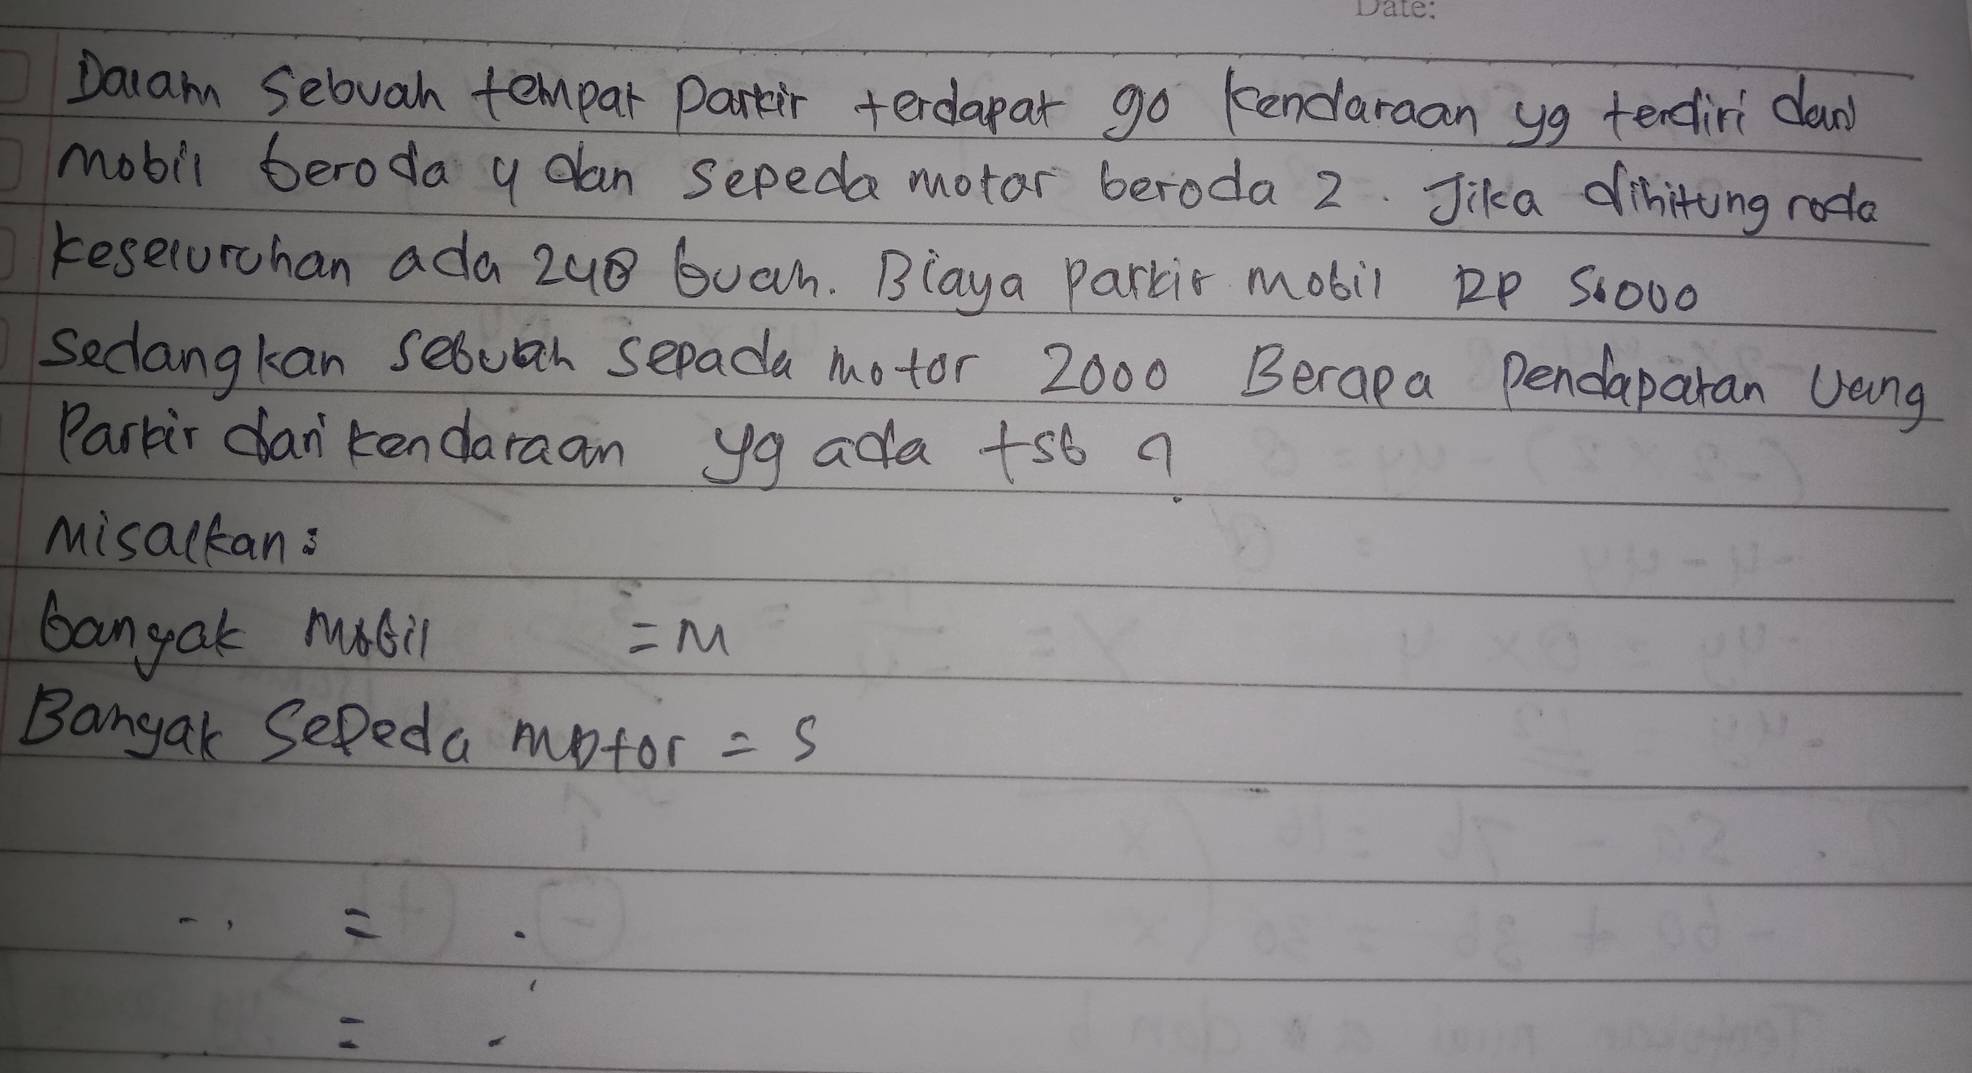 Date:
Dalam sebuah tempat parkir terdapat 90 kendaraan yg terdiri dari
mobil beroda 4 dan sepeda motor beroda 2. Jika dihitung roda
keseluruhan ada 248 buah. Biaya parkir mobil RP 5.000
sedangkan sebuah sepada motor 2000 Berapa pendapatan uang
Parkir dari kendaraan yg ada tsb ?
Misalkan:
banyak mobil = M
Banyak Sepeda motor = S
.. = .
= .